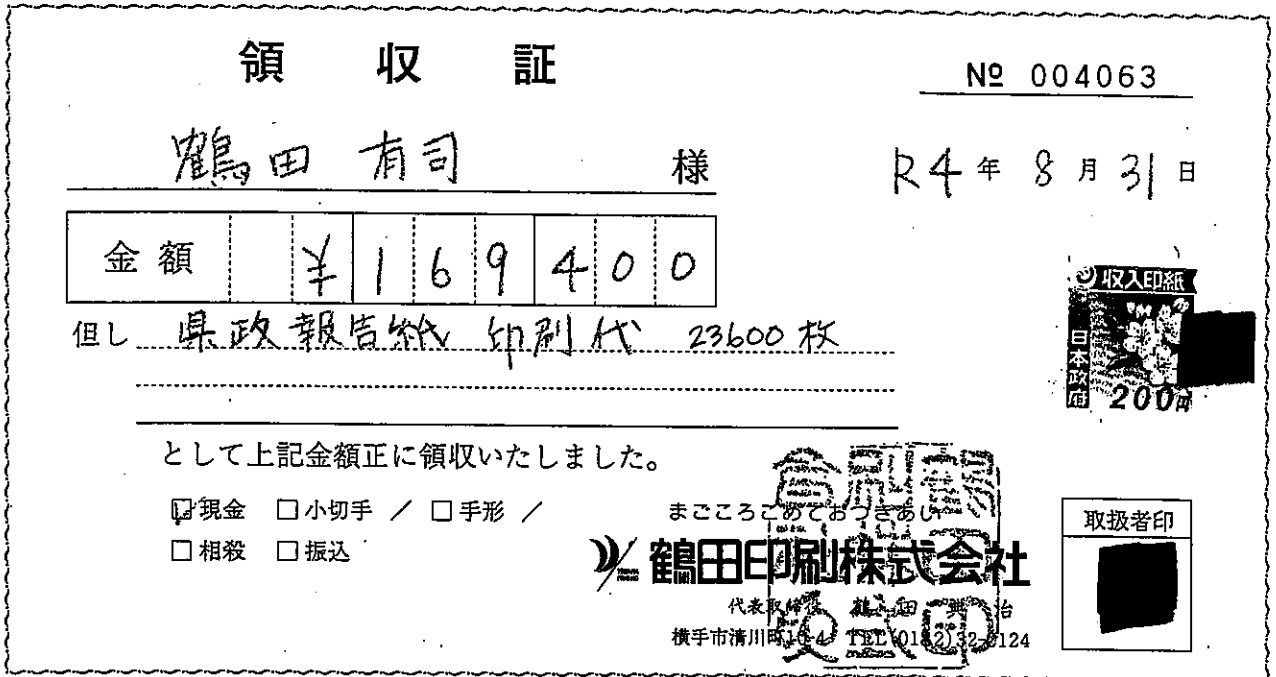 領収証
№ 004063
鶴田 有司 様
R4年 8月 31日
金額 ¥169400
但し 県政報告紙 印刷代 23600枚
収入印紙
日本政府
200円
として上記金額正に領収いたしました。
☑現金 □小切手 / □手形 /
□相殺 □振込
まごころこめておつきあい
鶴田印刷株式会社
代表取締役 鶴田 治
横手市清川町10-4 TEL(0182)32-
取扱者印